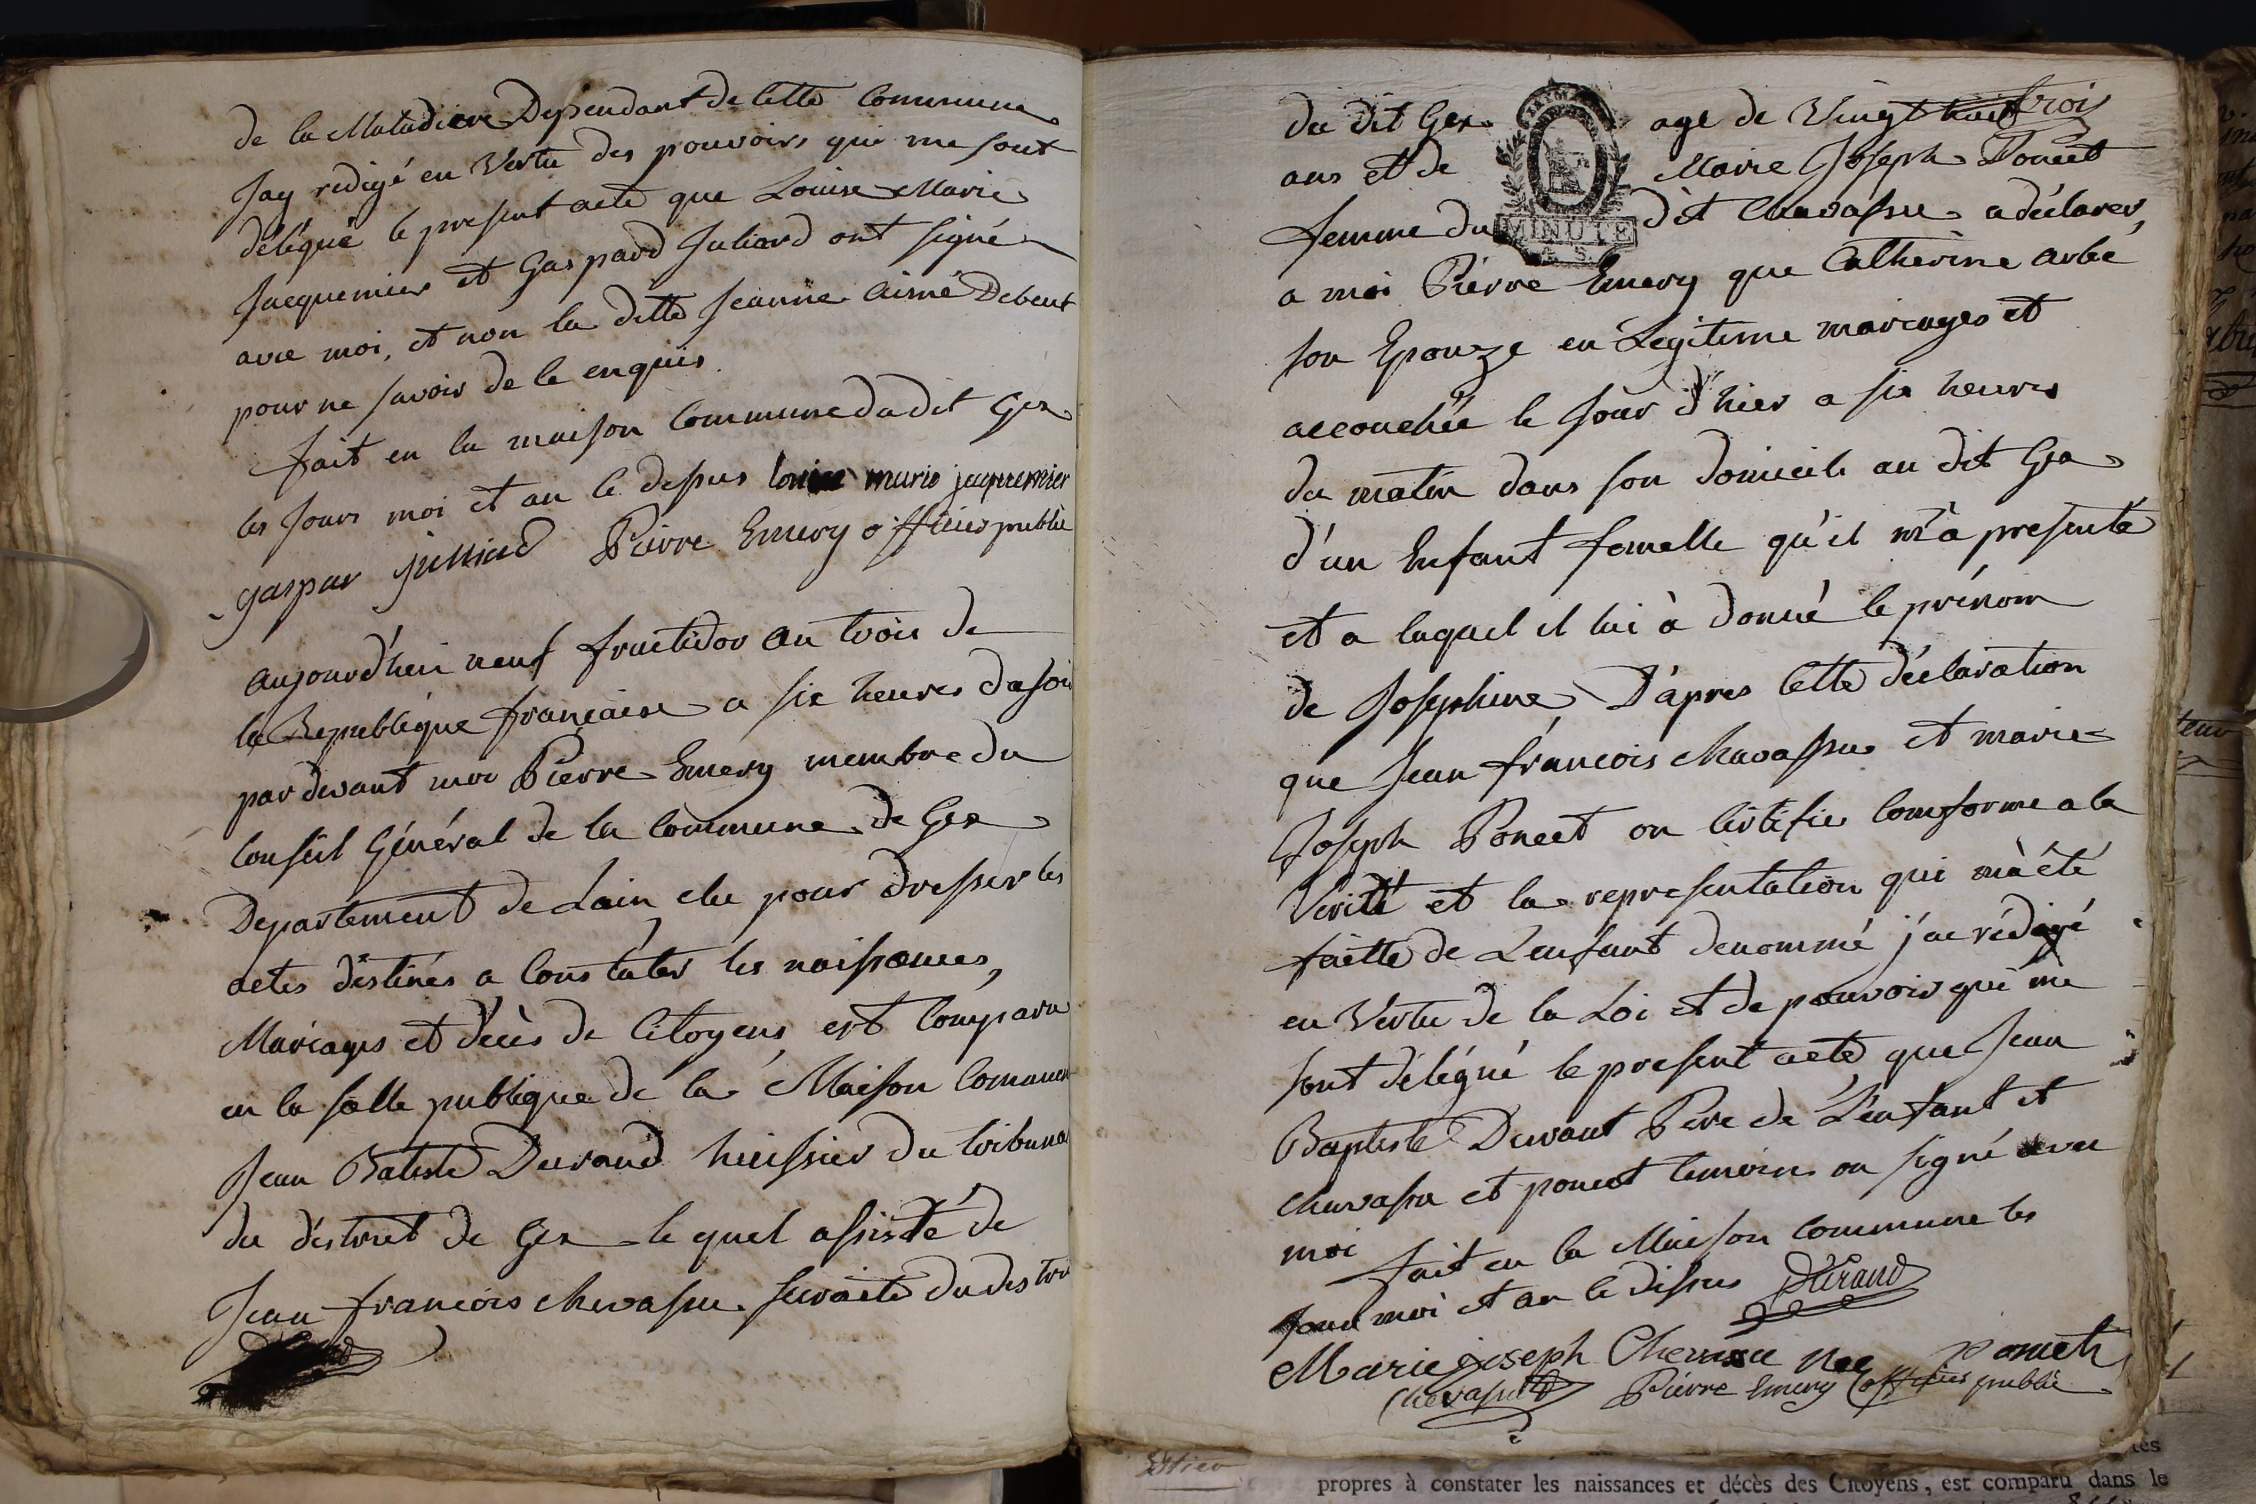 de la Maladiere Dependant de Cette Commune
Jay redigé en Vertu des pouvoirs qui me sont
délégué le present acte que Louise Marie
Jacquemier et Gaspard Juliard ont signé
avec moi, et non la ditte Jeanne Aimé Debeut
pour ne savoir de le enquis.
fait en la maison Commune du dit Gex
les Jours moi et an le dessus louise marie jaquemier
gaspar julliard Pierre Emery officier public
aujourd'hui neuf fructidor an trois de
la Republique francaise a six heures du soir
par devant moi Pierre Emery membre du
Conseil Général de la Commune de Gex
Departement de Lain, elu pour dresser les
actes déstinés a Constater les naissances,
Mariages et décès de Citoyens est Comparu
en la salle publique de la Maison Commune
Jean Batiste Durand huissier du tribunal
du déstrict de Gex le quel assisté de
Jean francois chavassu
du dit Gex age de Vingt huit trois
ans et de Marie Joseph Poncet
femme du dit Chavassu a déclarer,
a moi Pierre Emery que Catherine arbé
son Epouze en Légitime mariages et
accouchée le Jour d'hier a six heures
du matin dans son domicile au dit Gex
d'un Enfant femelle qu'il m'a presenté
et a laquel il lui à donné le prénom
de Josephine D'apres Cette déclaration
que Jean francois chavassu et marie
Joseph Poncet on Certifie Comforme a la
Verité et la representation qui m'à été
faitte de L'enfant denommé j'ai rédigé
en Vertu de la Loi et de pouvoir qui me
sont délégué le present acte que Jean
Baptiste Durant Pere de L'enfant et
chavassu et poncet temoins on signé avec
moi fait en la Maison Commune les
Jour moi et an le dessus Durand
Marie joseph Chevassu nee poncet
Chevassu Pierre Emery officier public
propres à constater les naissances et décès des Citoyens, est comparu dans le